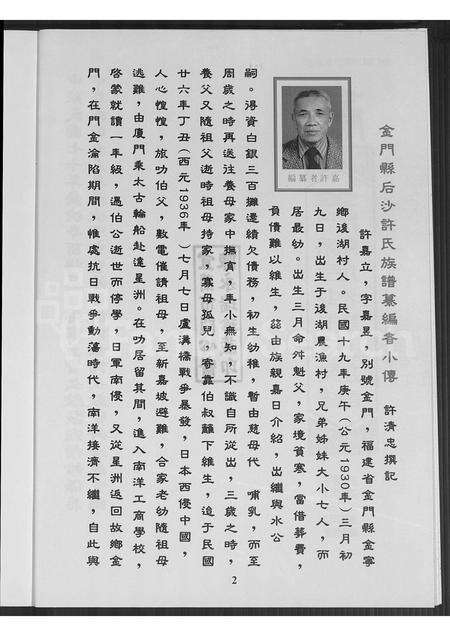 金門縣后沙許氏族譜纂編者小傳　許清忠撰記
許嘉立，字嘉星，別號金門，福建省金門縣金寧
鄉後湖村人。民國十九年庚午(公元1930年)三月初
九日，出生于後湖農漁村，兄弟姊妹大小七人，而
居最幼。出生三月命舛魁父，家境貧寒，當借葬費，
負債難以維生，茲由族親嘉日介紹，出繼與水公
編纂者許嘉
嗣。得資白銀三百攤還績欠債務，初生幼稚，暫由慈母代　哺乳，而至
周歲之時再送注養母家中撫育，年小無知，不識自所從出，三歲之時，
養父又隨祖父逝時祖母持家，寡母孤兒，寄靠伯叔籬下維生，迨于民國
廿六年丁丑(西元1936年)七月七日盧溝橋戰爭暴發，日本西侵中國，
人心惶惶，旅叻伯父，數電催請祖母，至新嘉坡避難，合家老幼隨祖母
逃難，由廈門乘太古輪船赴達星洲。在叻居留其間，進入南洋工商學校，
啓蒙就讀一年級，憑伯公逝世而停學，日軍南侵，又從星洲返回故鄉金
門，在門金淪陷期間，惟處抗日戰爭動蕩時代，南洋接濟不繼，自此與
2